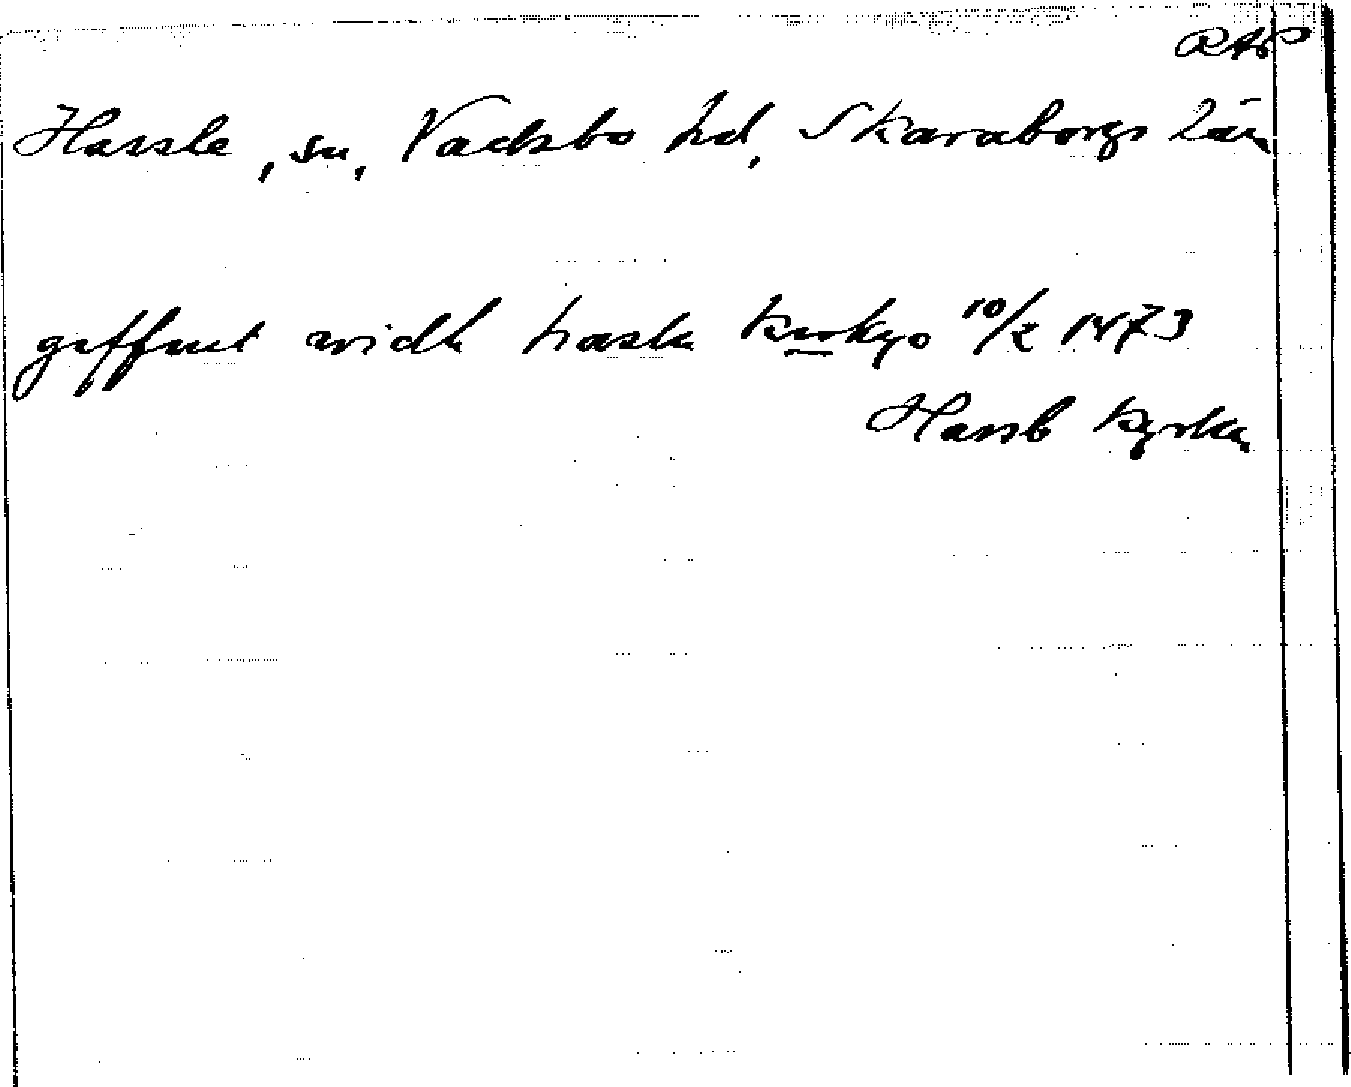 RAP
Hassle, sn, Vadsbo hd, Skaraborgs län
giffuet widh hasle kirkyo 10/2 1473
Hassle kyrka